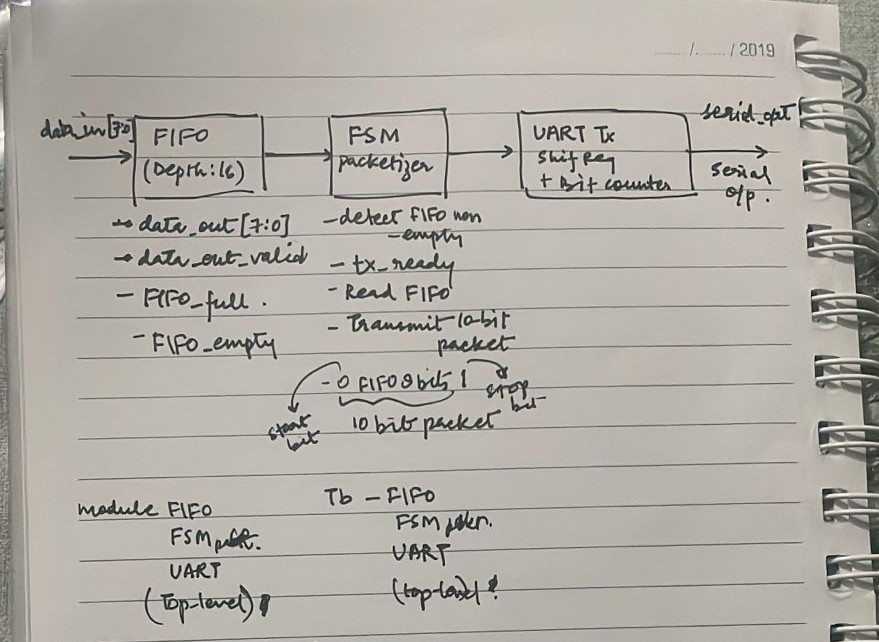 ...../......./2019
data_in[7:0]
FIFO
(Depth:16)
FSM
packetizer
UART Tx
Shif Reg
+ Bit counter
serial_out
serial
o/p.
→ data_out[7:0]
→ data_out_valid
- FIFO_full.
- FIFO_empty
- detect FIFO non
-empty
- tx_ready
- Read FIFO
- Transmit 10-bit
packet
- 0 FIFO 8 bits 1
start
bit
stop
bit
10 bit packet
module FIFO
FSM
UART
(Top-level)
Tb - FIFO
FSM
UART
(top-level)